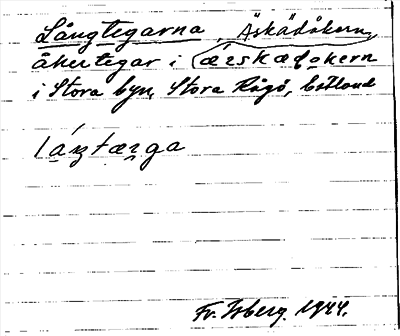 Långtegarna, Äskädåkern,
åkertegar i (ærskædåkern
i Stora byn, Stora Rågö, Estland
láŋtærga
Fr. Isberg. 1944.